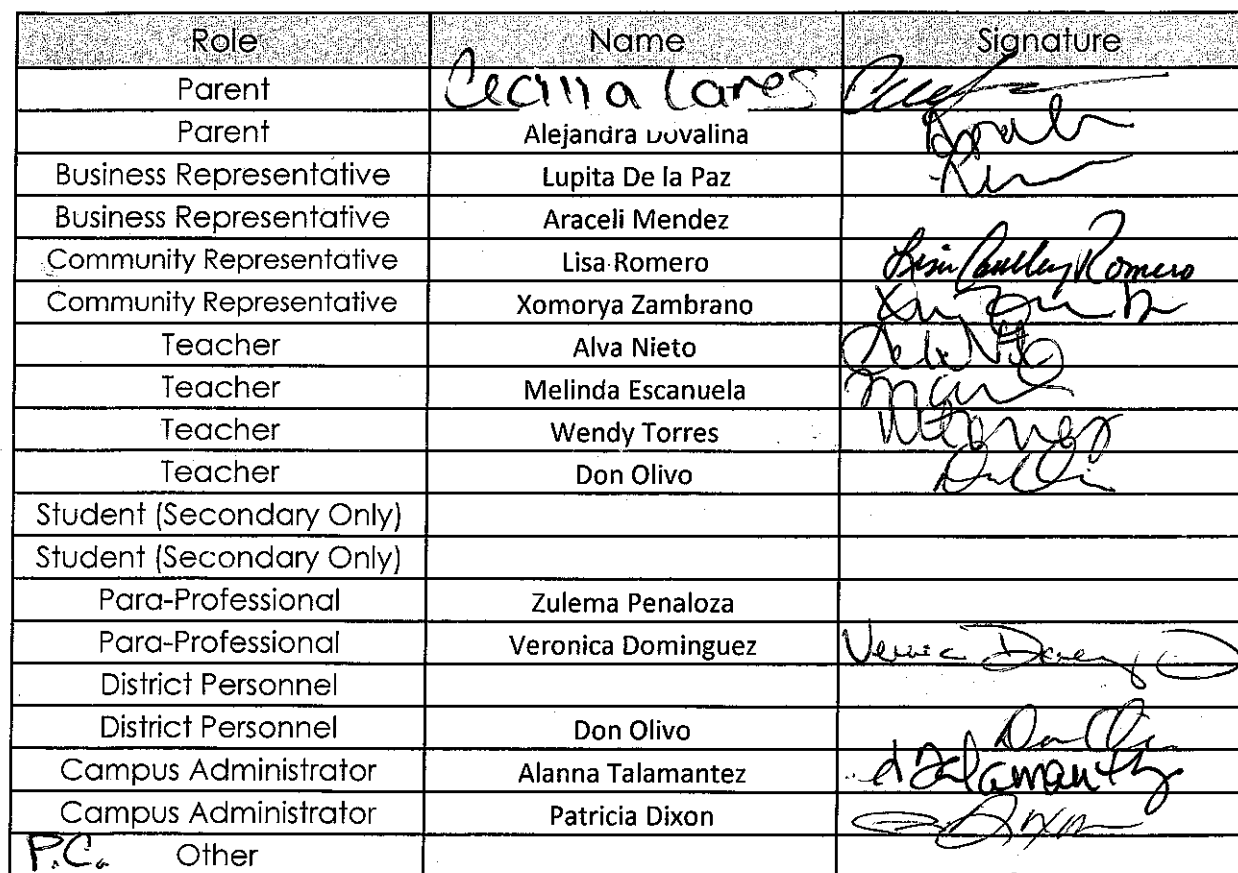 Role Name Signature
Parent Cecilia Lares
Parent Alejandra Dovalina
Business Representative Lupita De la Paz
Business Representative Araceli Mendez
Community Representative Lisa Romero Lisa Cauley Romero
Community Representative Xomorya Zambrano
Teacher Alva Nieto
Teacher Melinda Escanuela
Teacher Wendy Torres WTorres
Teacher Don Olivo
Student (Secondary Only)
Student (Secondary Only)
Para-Professional Zulema Penaloza
Para-Professional Veronica Dominguez
District Personnel
District Personnel Don Olivo
Campus Administrator Alanna Talamantez
Campus Administrator Patricia Dixon
P.C. Other